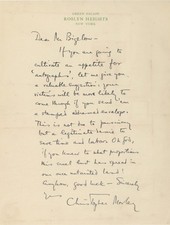 ROSLYN HEIGHTS
NEW YORK
Dear Mr Bigelow—
If you are going to
cultivate an appetite for
"autographs", let me give you
a valuable suggestion. Your
victims will be more likely to
come through if you send 'em
a stamped addressed envelope.
This is not due to parsimony
but a legitimate desire to
save time and labor. Or so,
if you knew to what proportions
this has spread in
our own untitled land!
Anyhow, good luck — Sincerely
yours
Christopher Morley